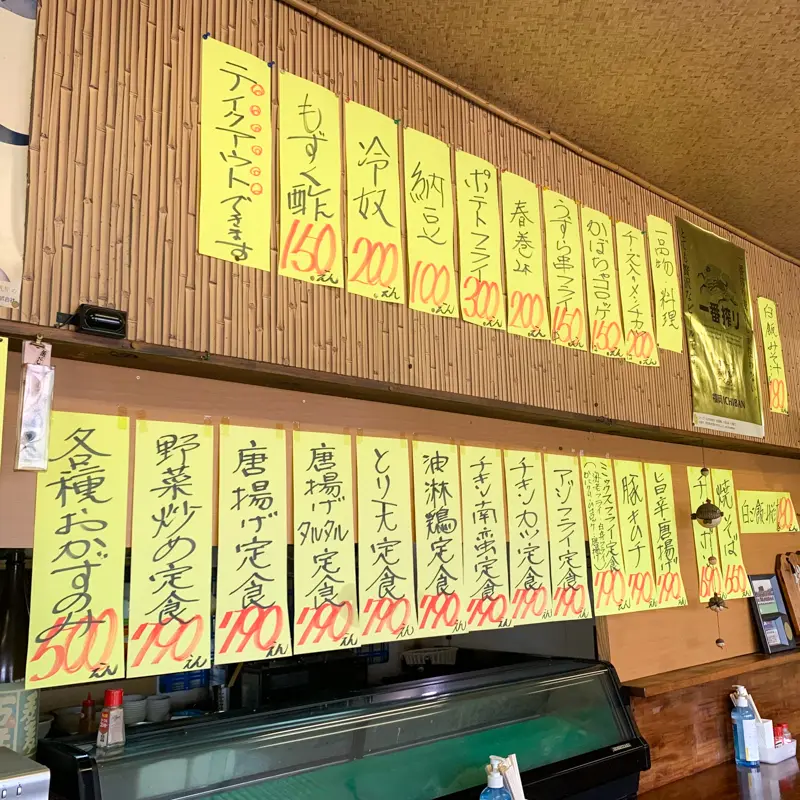 テイクアウトできます
もずく酢 150えん
冷奴 200えん
納豆 100えん
ポテトフライ 300えん
春巻2本 200えん
うずら串フライ 150えん
かぼちゃコロッケ 150えん
チーズ入りメンチカツ 200えん
一品物・料理
一番搾り
ICHIBAN
白飯みそ汁
各種おかずのみ 500えん
野菜炒め定食 790えん
唐揚げ定食 790えん
唐揚げタルタル定食 790えん
とり天定食 790えん
油淋鶏定食 790えん
チキン南蛮定食 790えん
チキンカツ定食 790えん
アジフライ定食 790えん
ミックスフライ定食 790
豚キムチ 790
旨辛唐揚げ 790
焼そば